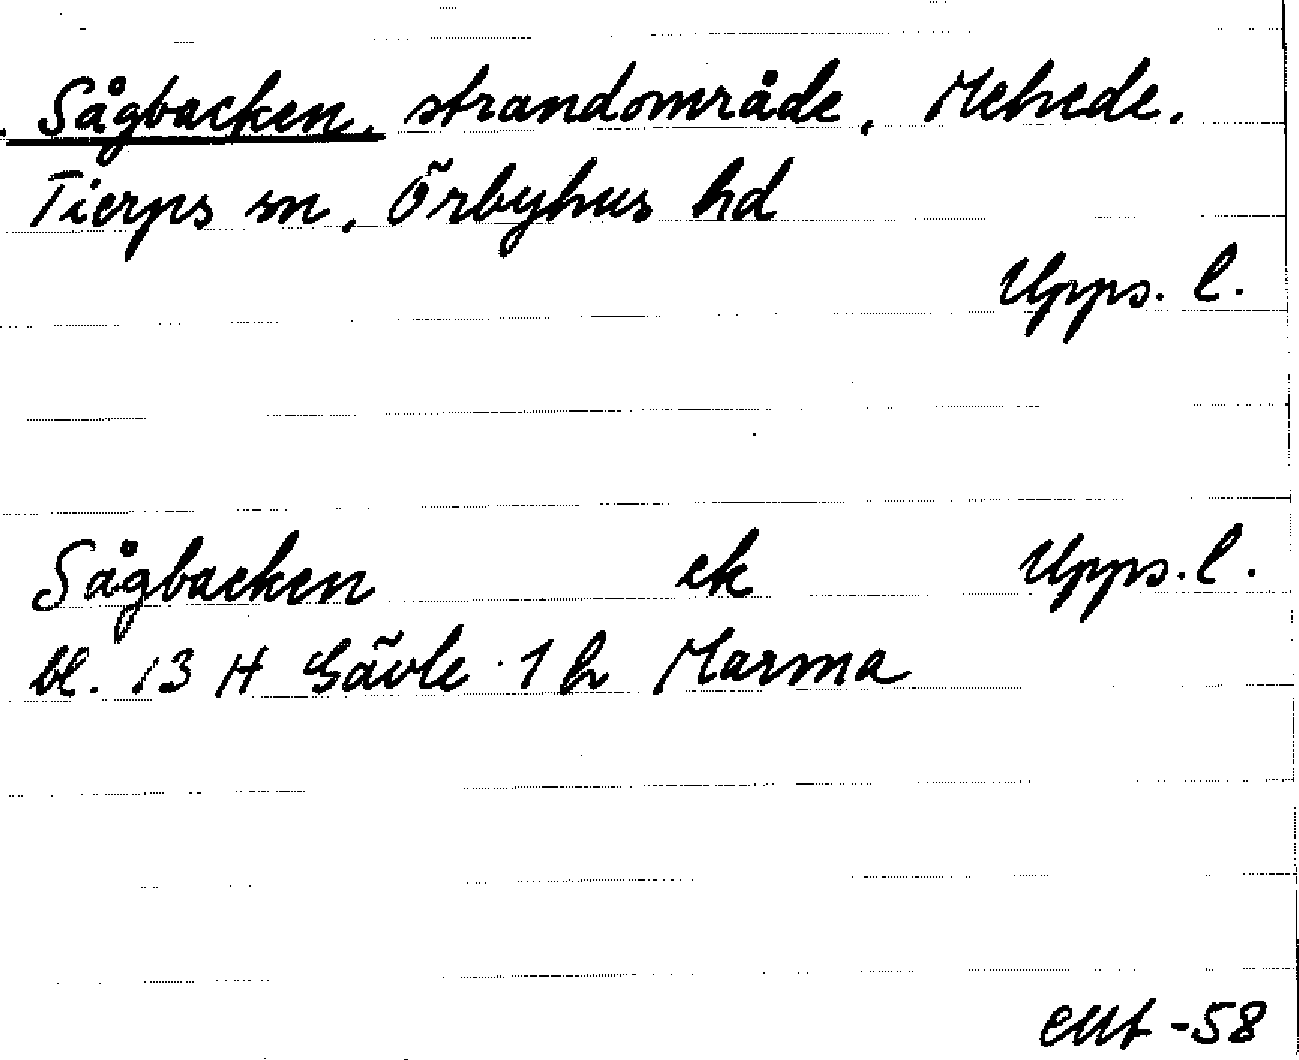 Sågbacken, strandområde, Mehede,
Tierps sn, Örbyhus hd
Upps. l.
Sågbacken ek Upps. l.
bl. 13 H Gävle 1 h Marma
-58